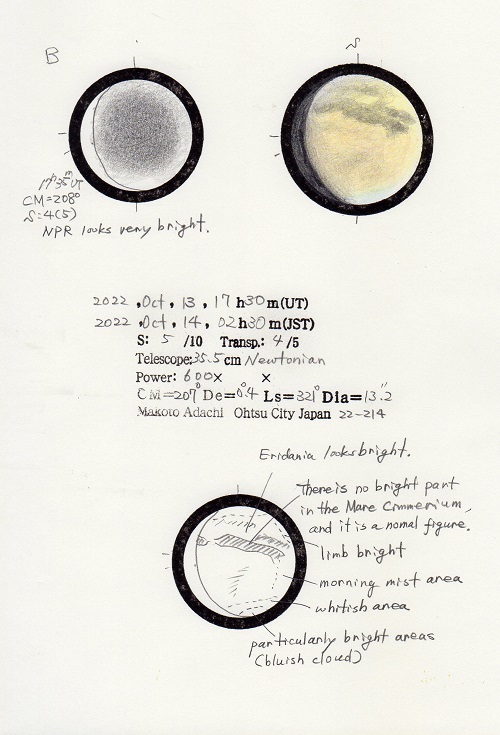 B
S
17h35mUT
CM=208°
S:4(5)
NPR looks very bright.
2022 ,Oct, 13, 17h30m(UT)
2022 ,Oct, 14, 02h30m(JST)
S: 5 /10 Transp.: 4/5
Telescope:35.5cm Newtonian
Power: 600× ×
CM=207° De=0.°4 Ls=321° Dia=13."2
Makoto Adachi Ohtsu City Japan 22-214
Eridania looks bright.
There is no bright part
in the Mare Cimmerium,
and it is a nomal figure.
limb bright
morning mist area
whitish area
particularly bright areas
(bluish cloud)